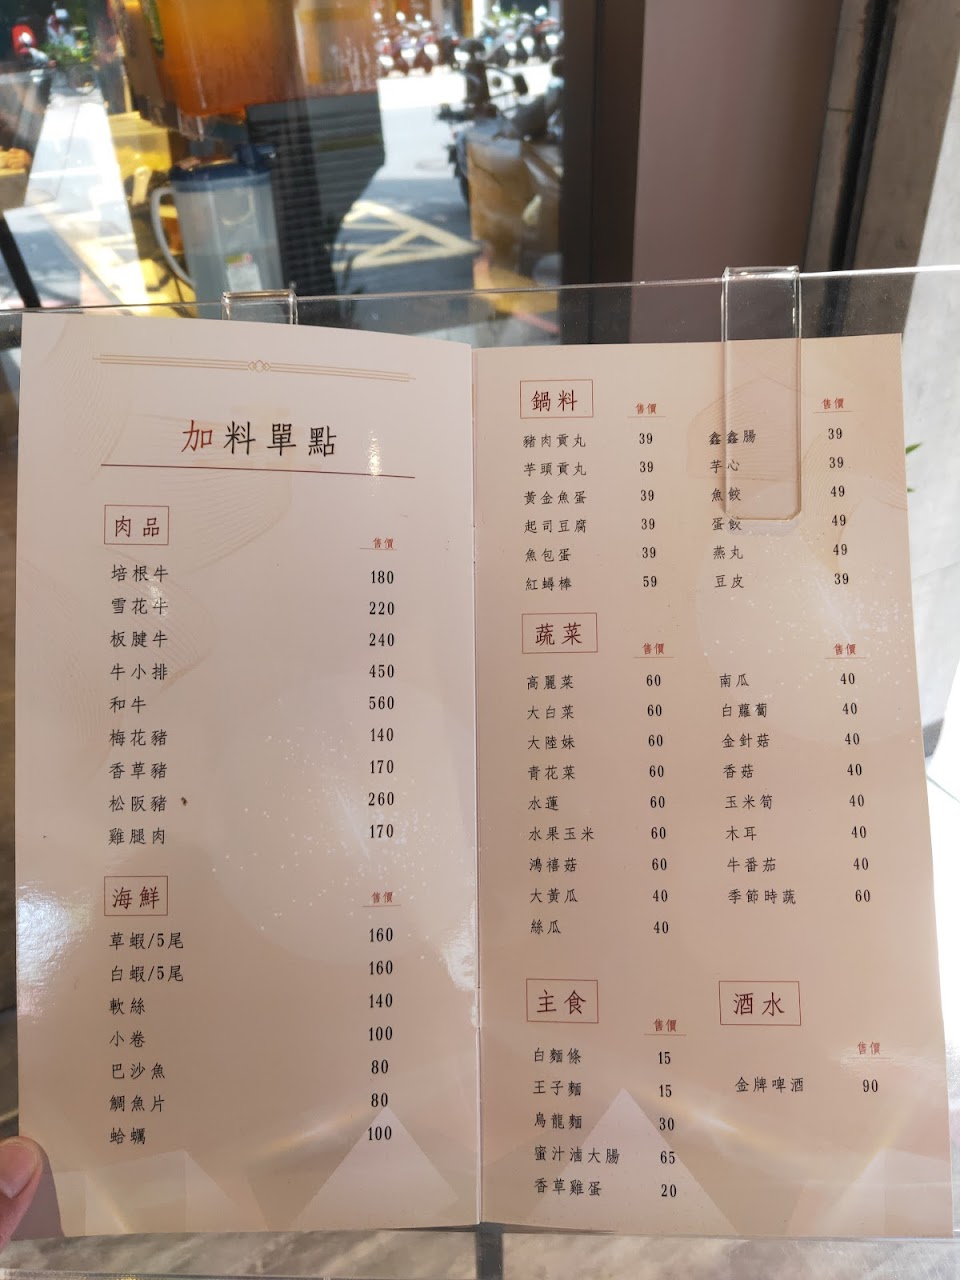 加料單點
肉品
售價
培根牛 180
雪花牛 220
板腱牛 240
牛小排 450
和牛 560
梅花豬 140
香草豬 170
松阪豬 260
雞腿肉 170
海鮮
售價
草蝦/5尾 160
白蝦/5尾 160
軟絲 140
小卷 100
巴沙魚 80
鯛魚片 80
蛤蠣 100
鍋料
售價 售價
豬肉貢丸 39 鑫鑫腸 39
芋頭貢丸 39 芋心 39
黃金魚蛋 39 魚餃 49
起司豆腐 39 蛋餃 49
魚包蛋 39 燕丸 49
紅蟳棒 59 豆皮 39
蔬菜
售價 售價
高麗菜 60 南瓜 40
大白菜 60 白蘿蔔 40
大陸妹 60 金針菇 40
青花菜 60 香菇 40
水蓮 60 玉米筍 40
水果玉米 60 木耳 40
鴻禧菇 60 牛番茄 40
大黃瓜 40 季節時蔬 60
絲瓜 40
主食
售價
白麵條 15
王子麵 15
烏龍麵 30
蜜汁滷大腸 65
香草雞蛋 20
酒水
售價
金牌啤酒 90